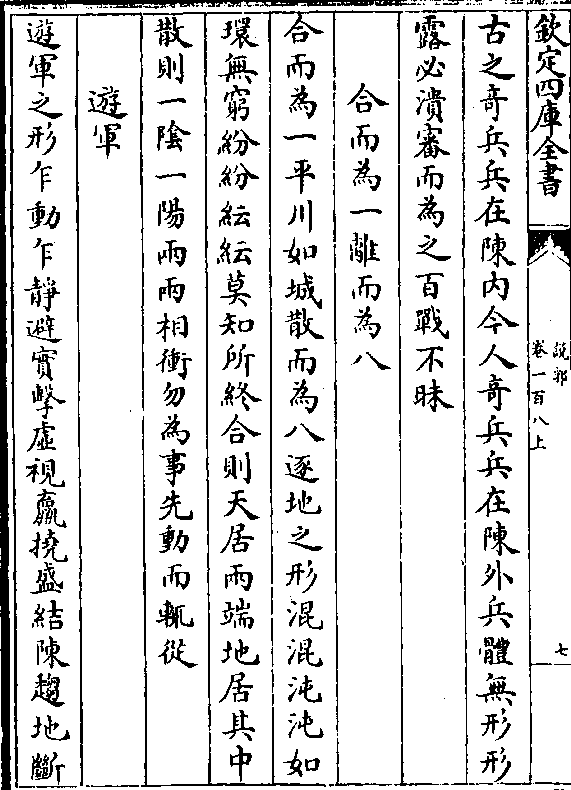 欽定四庫全書
說郛
卷一百八上
七
古之竒兵兵在陳内今人竒兵兵在陳外兵體無形形
露必潰審而為之百戰不昧
合而為一離而為八
合而為一平川如城散而為八逐地之形混混沌沌如
環無窮紛紛紜紜莫知所終合則天居兩端地居其中
散則一陰一陽兩兩相衝勿為事先動而輒從
遊軍
遊軍之形乍動乍靜避實擊虛視羸撓盛結陳趨地斷